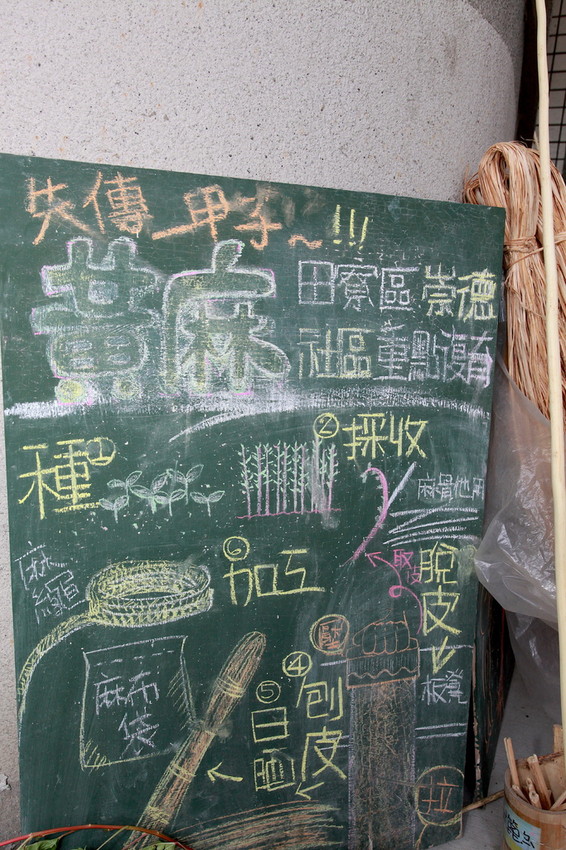 失傳一甲子～!!!
黃麻
田寮區崇德
社區重點復育
①種
②採收
麻骨他用
取皮
脫皮
板凳
壓
④刨皮
拉
⑤日曬
⑥加工
麻繩
麻布袋